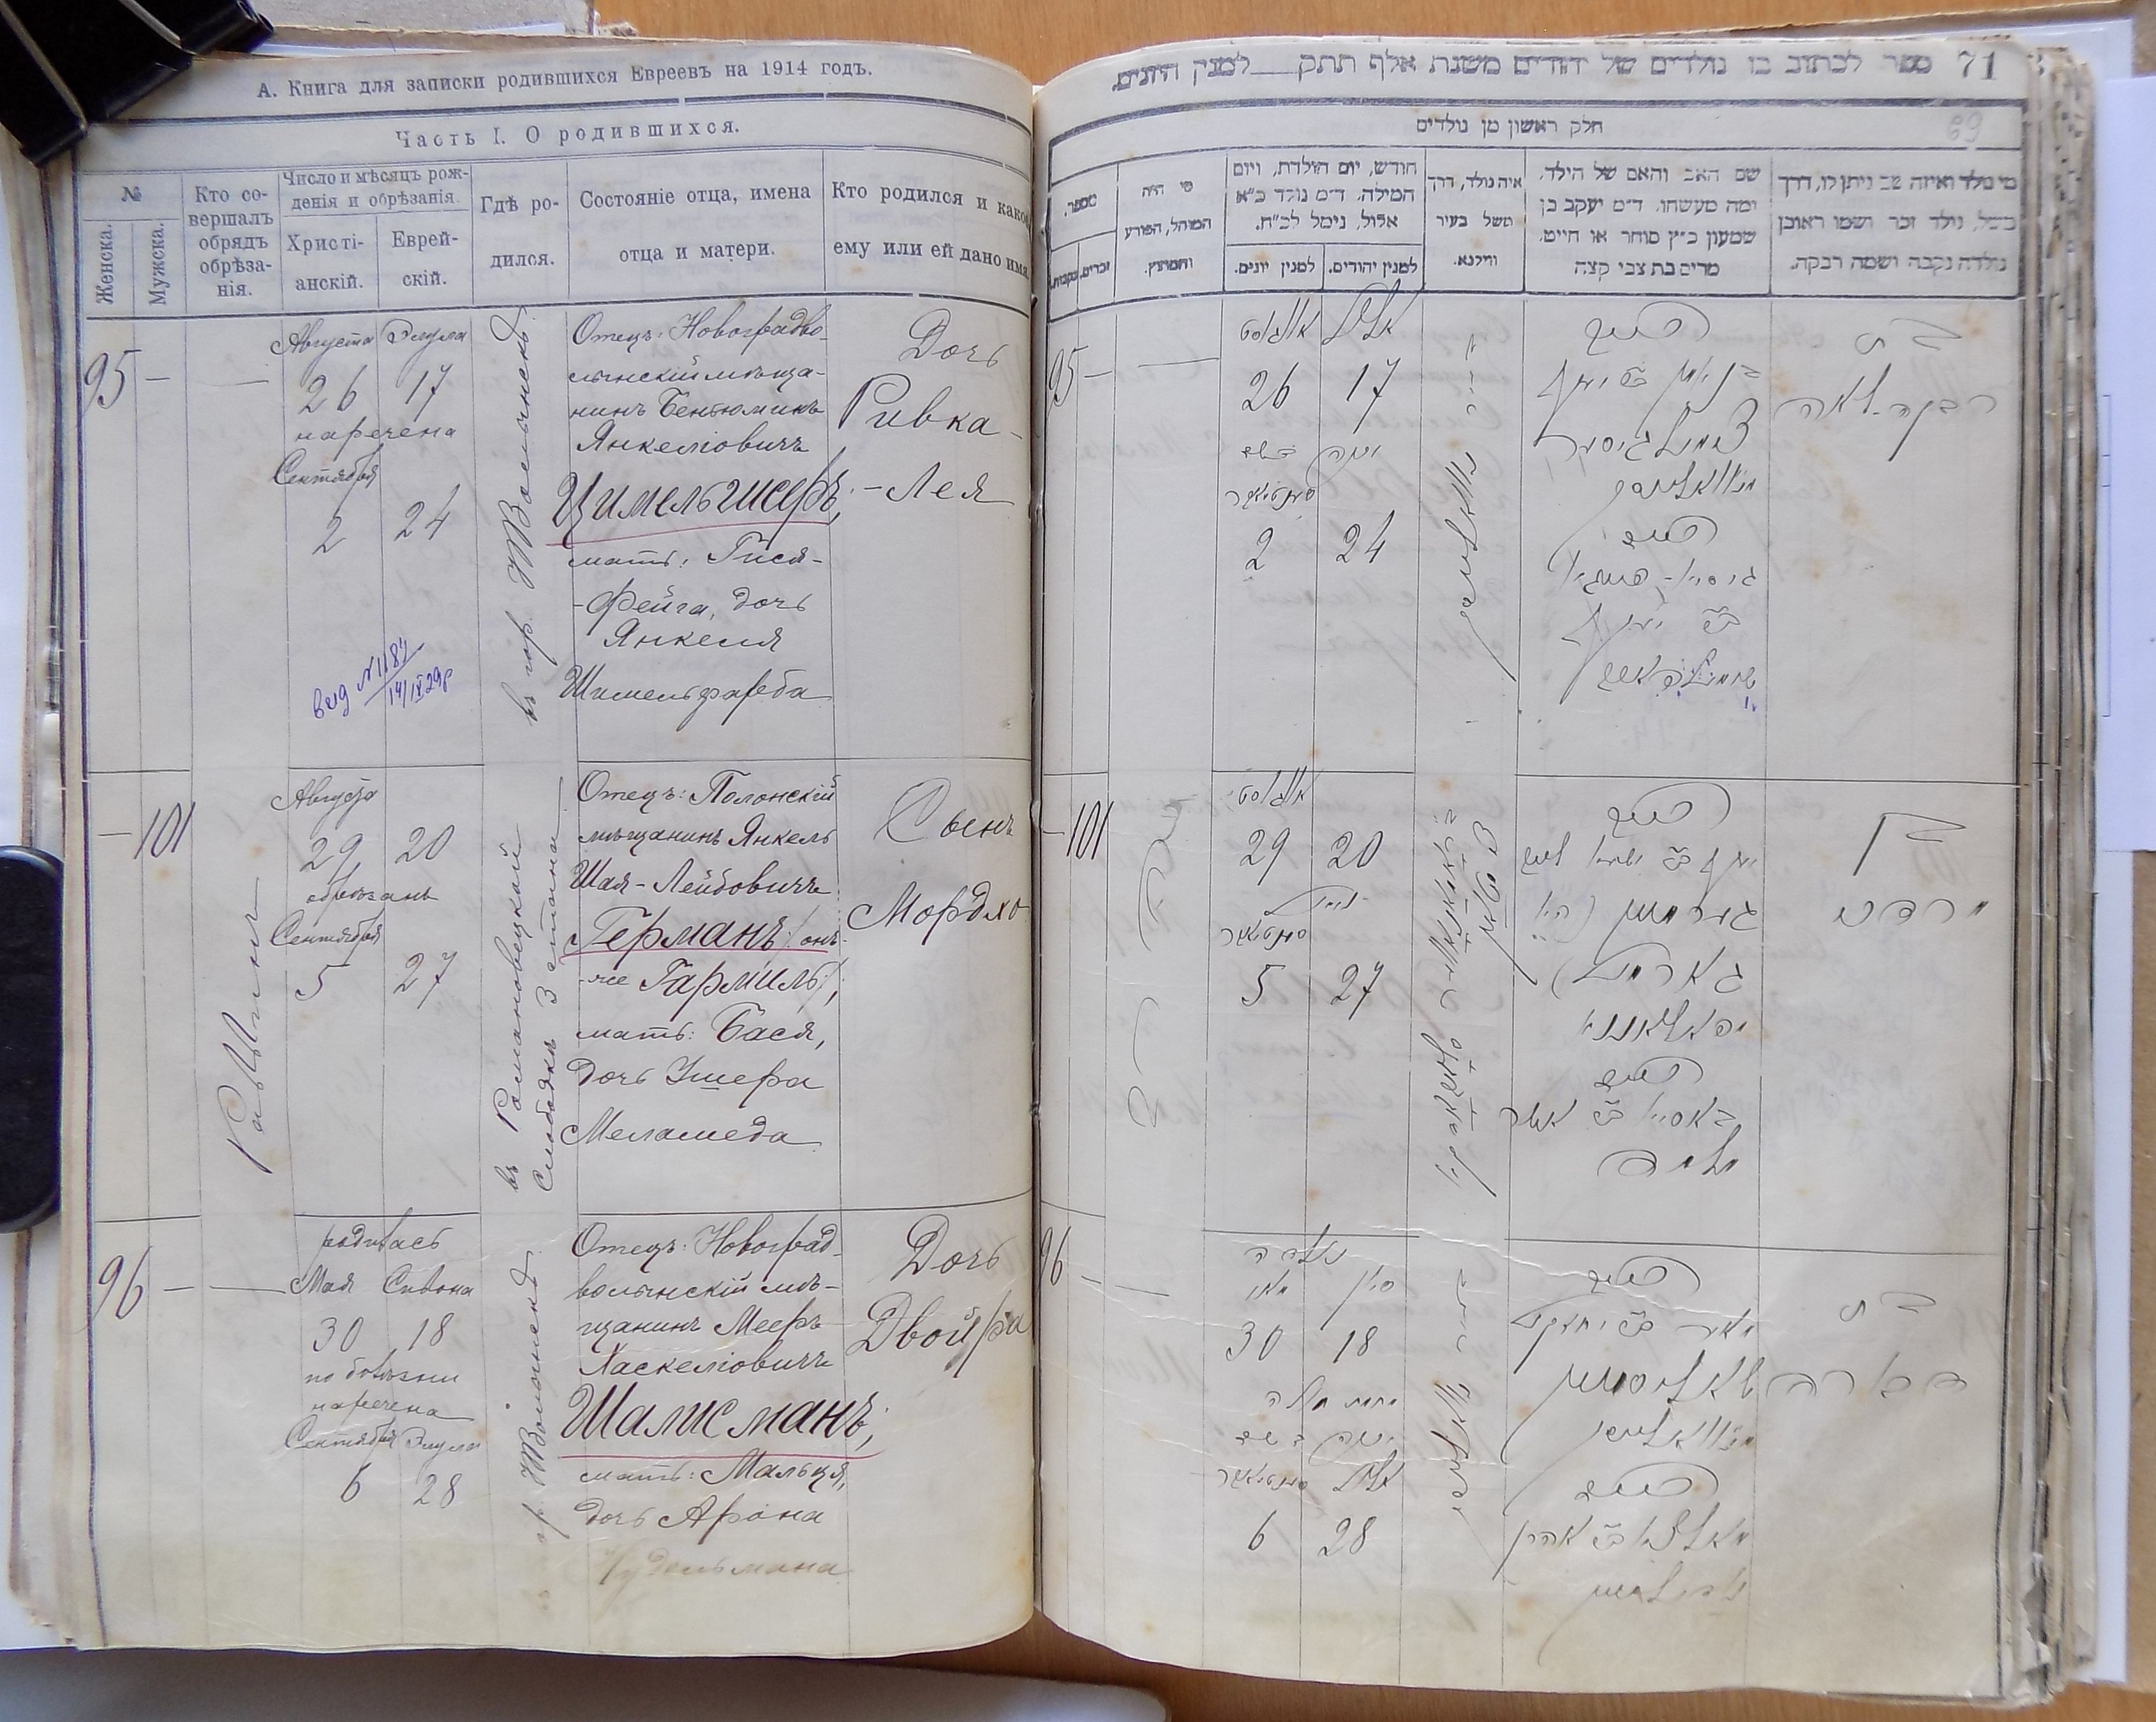 А. Книга для записки родившихся Евреевъ на 1914 годъ.
Часть I. О родившихся.
№
Женска.
Мужска.
Кто со-
вершалъ
обрядъ
обрѣза-
нія.
Число и мѣсяцъ рож-
денія и обрѣзанія.
Христі-
анскій.
Еврей-
скій.
Гдѣ ро-
дился.
Состояніе отца, имена
отца и матери.
Кто родился и какое
ему или ей дано имя
95 —
—
Августа Элула
26 17
наречена
Сентября
2 24
вид №1182
14/IX 29р
въ гор. НВолынскѣ
Отецъ: Новоградво-
лынскій мѣща-
нинъ Бенюминъ
Янкеліовичъ
Цимельгисеръ,
мать: Гися-
-Фейга, дочь
Янкеля
Шимельфарба
Дочь
Ривка-
-Лея
— 101
Раввинъ
Августа
29 20
обрѣзанъ
Сентября
5 27
въ Романовецкой
Слободкѣ 3 стана
Отецъ: Полонскій
мѣщанинъ Янкель
Шая-Лейбовичъ
Германъ /онъ-
-же Гармиль/,
мать: Бася,
дочь Ушера
Меламеда
Сынъ
Мордко
96 —
—
родилась
Мая Сивона
30 18
по болѣзни
наречена
Сентября Элула
6 28
въ гр. НВолынскѣ
Отецъ: Новоград-
волынскій мѣ-
щанинъ Мееръ
Хаскеліовичъ
Шалисманъ,
мать: Мальця,
дочь Арона
Нудельмана
Дочь
Двойра
71 ספר לכתוב בו נולדים של יהודים משנת אלף תתק למנין היונים.
69
חלק ראשון מן נולדים
מספר.
זכרים. נקבות.
מי היה
המוהל, הפורע
והמוצץ.
חודש, יום הולדת, ויום
המילה. ד״מ נולד כ״א
אלול, נימל לכ״ח.
למנין יונים. למנין יהודים.
איה נולד, דרך
משל בעיר
ווילנא.
שם האב והאם של הילד,
ומה מעשהו. ד״מ יעקב בן
שמעון כ״ץ סוחר או חייט,
מרים בת צבי קצה
מי נולד ואיזה שם ניתן לו, דרך
משל, נולד זכר ושמו ראובן
נולדה נקבה ושמה רבקה.
95 —
—
אויגוסט אלול
26 17
סעפטיאבר
2 24
האב
האם
בת
רבקה-לאה
— 101
אויגוסט
29 20
נימול
סעפטיאבר
5 27
האב
האם
באסיא בת אשר
מלמד
בן
מרדכי
96 —
—
נולדה
מאי סיון
30 18
סעפטיאבר אלול
6 28
האב
מאיר בר יחזקאל
שאליסמאן
האם
מאלציא בת אהרן
נודילמאן
בת
דבורה